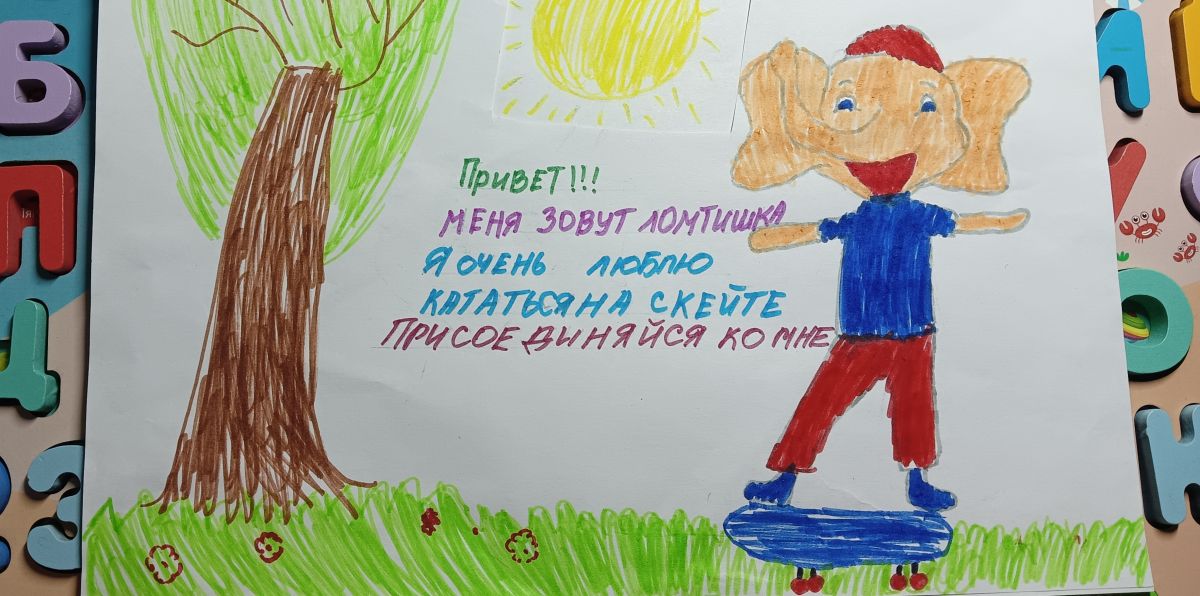 ПРИВЕТ!!!
МЕНЯ ЗОВУТ ЛОМТИШКА
Я ОЧЕНЬ ЛЮБЛЮ
КАТАТЬСЯ НА СКЕЙТЕ
ПРИСОЕДИНЯЙСЯ КО МНЕ
Б
П
Д
З